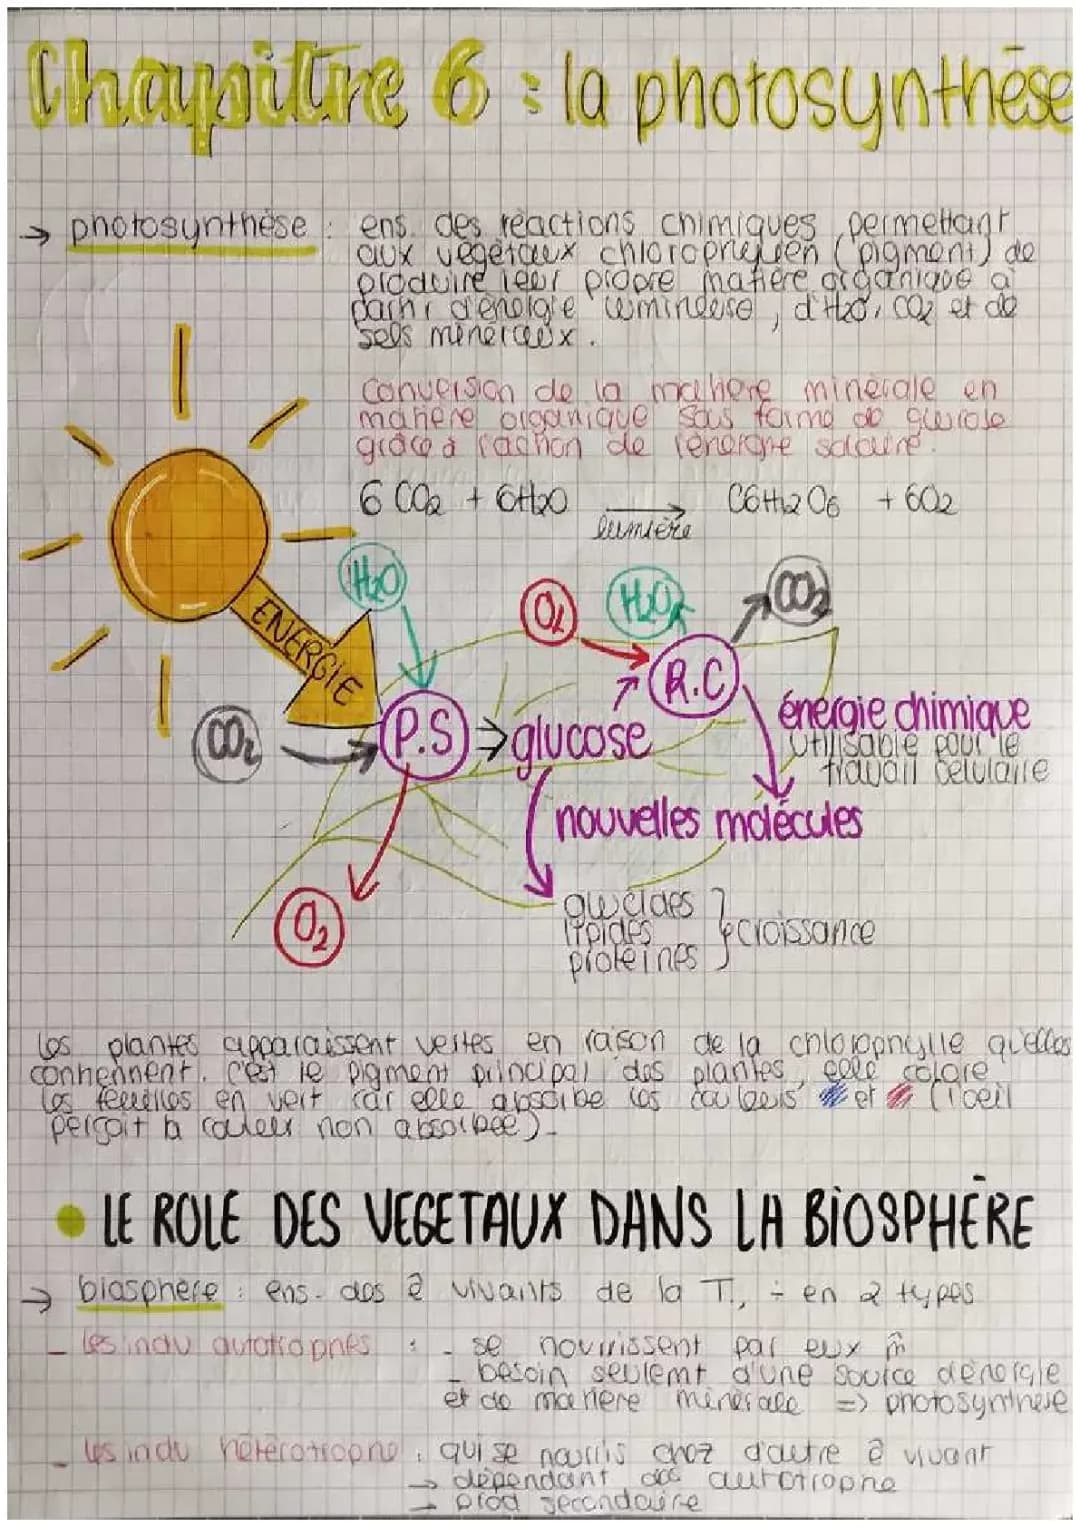 Chapitre 6 : la photosynthèse
→ photosynthèse : ens. des réactions chimiques permettant
aux végétaux chlorophylien (pigment) de
produire leur propre matière organique à
partir d'énergie lumineuse, d'H2O, CO2 et de
sels minéraux.
Conversion de la matière minérale en
matière organique sous forme de glucose
grâce à l'action de l'énergie solaire.
6 CO2 + 6H2O → C6H12O6 + 6O2
lumière
H2O
O2
H2O
CO2
ENERGIE
R.C
CO2
P.S ⇒ glucose
énergie chimique
utilisable pour le
travail celulaire
nouvelles molécules
O2
glucides
lipides
protéines
croissance
Les plantes apparaissent vertes en raison de la chlorophylle qu'elles
contiennent. C'est le pigment principal des plantes, elle colore
les feuilles en vert car elle absorbe les couleurs et (l'oeil
perçoit la couleur non absorbée).
• LE ROLE DES VEGETAUX DANS LA BIOSPHÈRE
→ biosphère : ens. des ê vivants de la T, ÷ en 2 types
- les indv autotrophes : - se nourrissent par eux m̂
- besoin seulemt d'une source d'énergie
et de matière minérale => photosynthèse
- les indv hétérotrophe : qui se nourris chez d'autre ê vivant
→ dépendant des autotrophe
→ prod secondaire